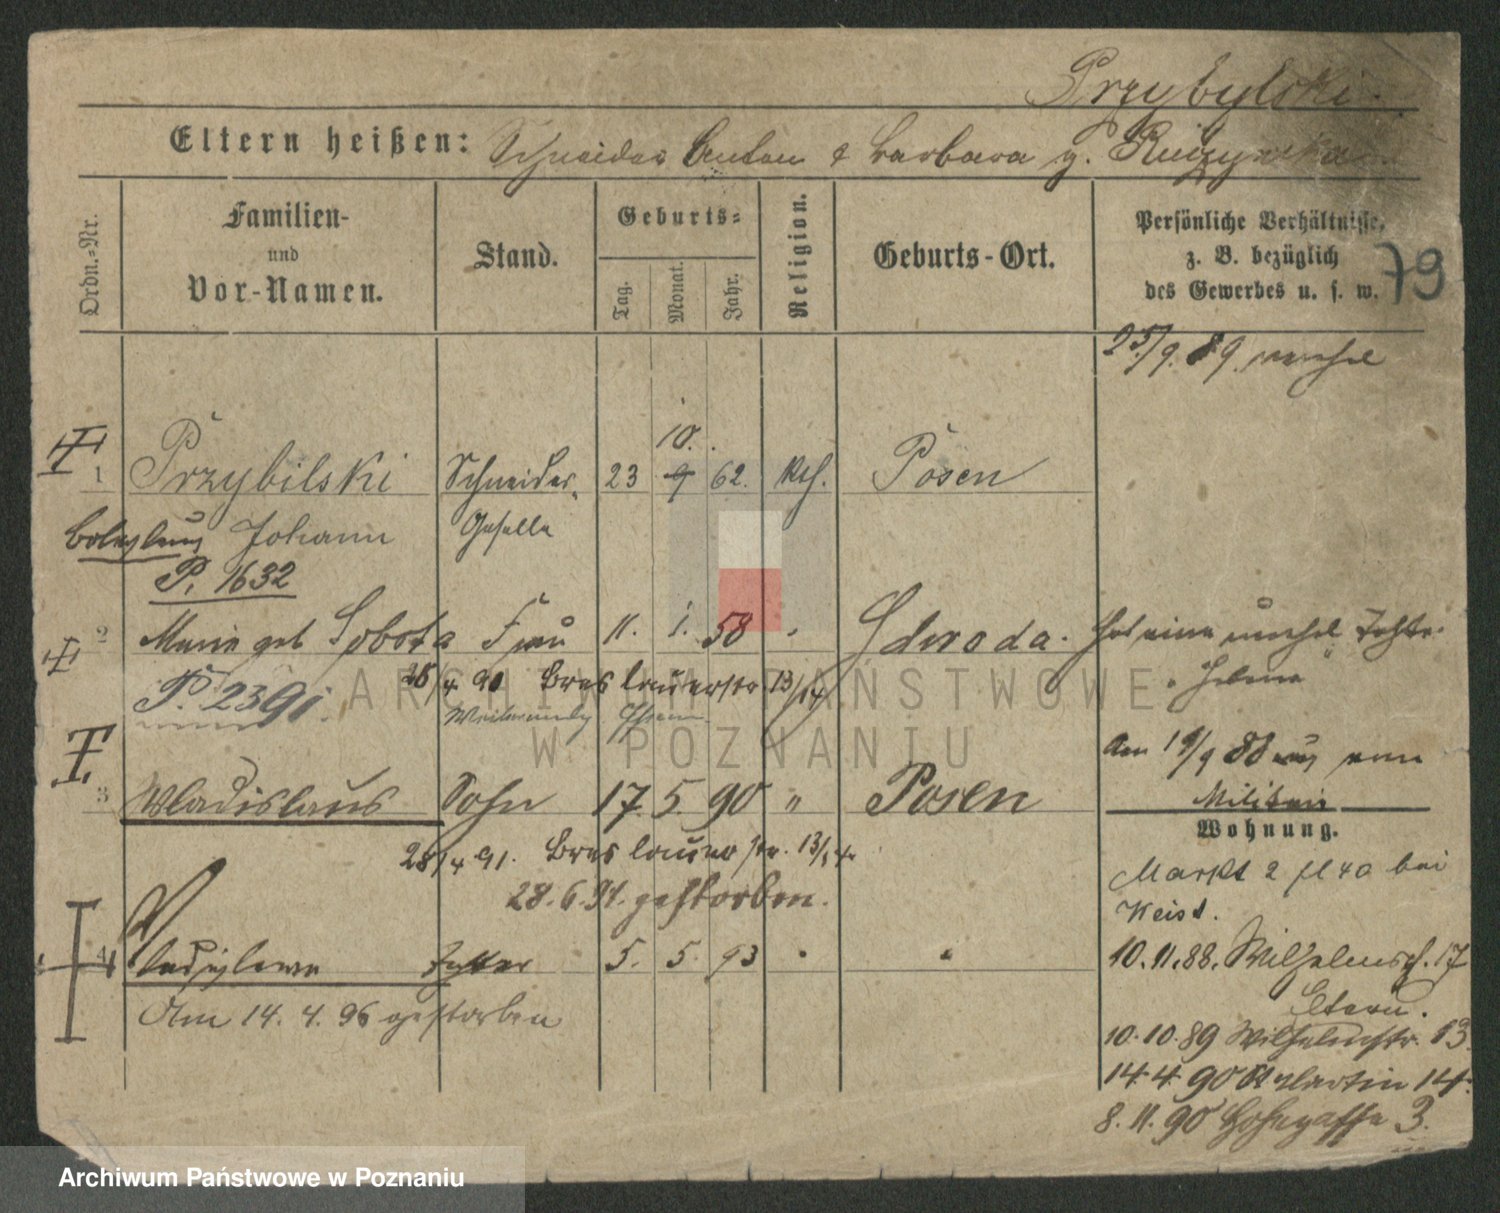 Przybylski.
Eltern heißen: Schneider Anton & Barbara g.
Ordn.-Nr.
Familien- und Vor-Namen.
Stand.
Geburts-
Tag. Monat. Jahr.
Religion.
Geburts-Ort.
Persönliche Verhältnisse,
z. B. bezüglich
des Gewerbes u. s. w.
79
25/9. 89.
10.
1 Przybilski Schneider- 23 9 62. Kth. Posen
Boleslaus Johann Geselle
P. 1632
2 Marie geb Sobota Frau 11. 1. 58 Schroda. hat eine
Helene
28/4 90 Breslauerstr 13/14
P. 2391.
Am 19/9 88 aus vom
Militair
3 Wladislaus Sohn 17. 5. 90 " Posen
Wohnung.
28/4 91. Breslauerstr. 13/14.
28.6.91. gestorben.
Markt 2 bei
Keist.
4 Wladislawa 5. 5. 93
10.11.88. Wilhelmspl. 17
Eltern.
Am 14. 4. 96 gestorben
10.10.89 Wilhelmstr. 13.
14.4.90 St Martin 14.
8.11.90 3.
ARCHIWUM PAŃSTWOWE
W POZNANIU
Archiwum Państwowe w Poznaniu